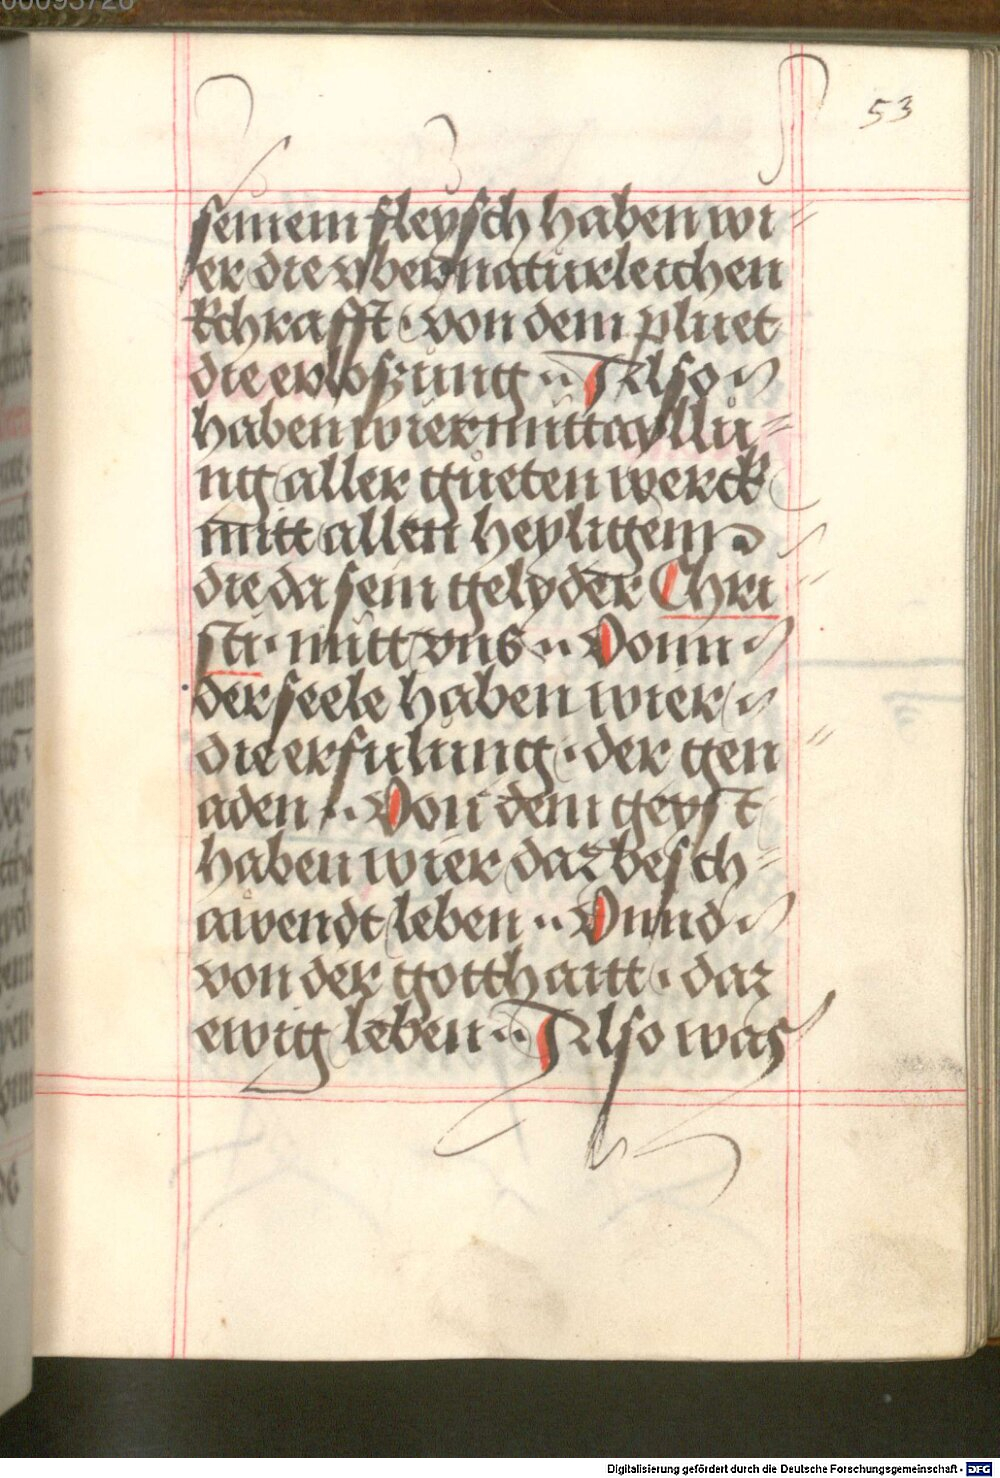 53
seinem fleysch haben wi=
er die vbernaturleichen
kchrafft · von dem pluet
die erloszung ·· Also
haben wier mittayllu=
ng aller gueten werck
mitt allen heyligenn
die da sein gelyder Chri=
sti · mitt vns ·· Vonn
der seele haben wier
die erfulung · der gen=
aden ·· Von dem geyst
haben wier daz besch=
awendt leben ·· Vnnd
von der gotthaitt · daz
ewig leben ·· Also was
Digitalisierung gefördert durch die Deutsche Forschungsgemeinschaft - DFG